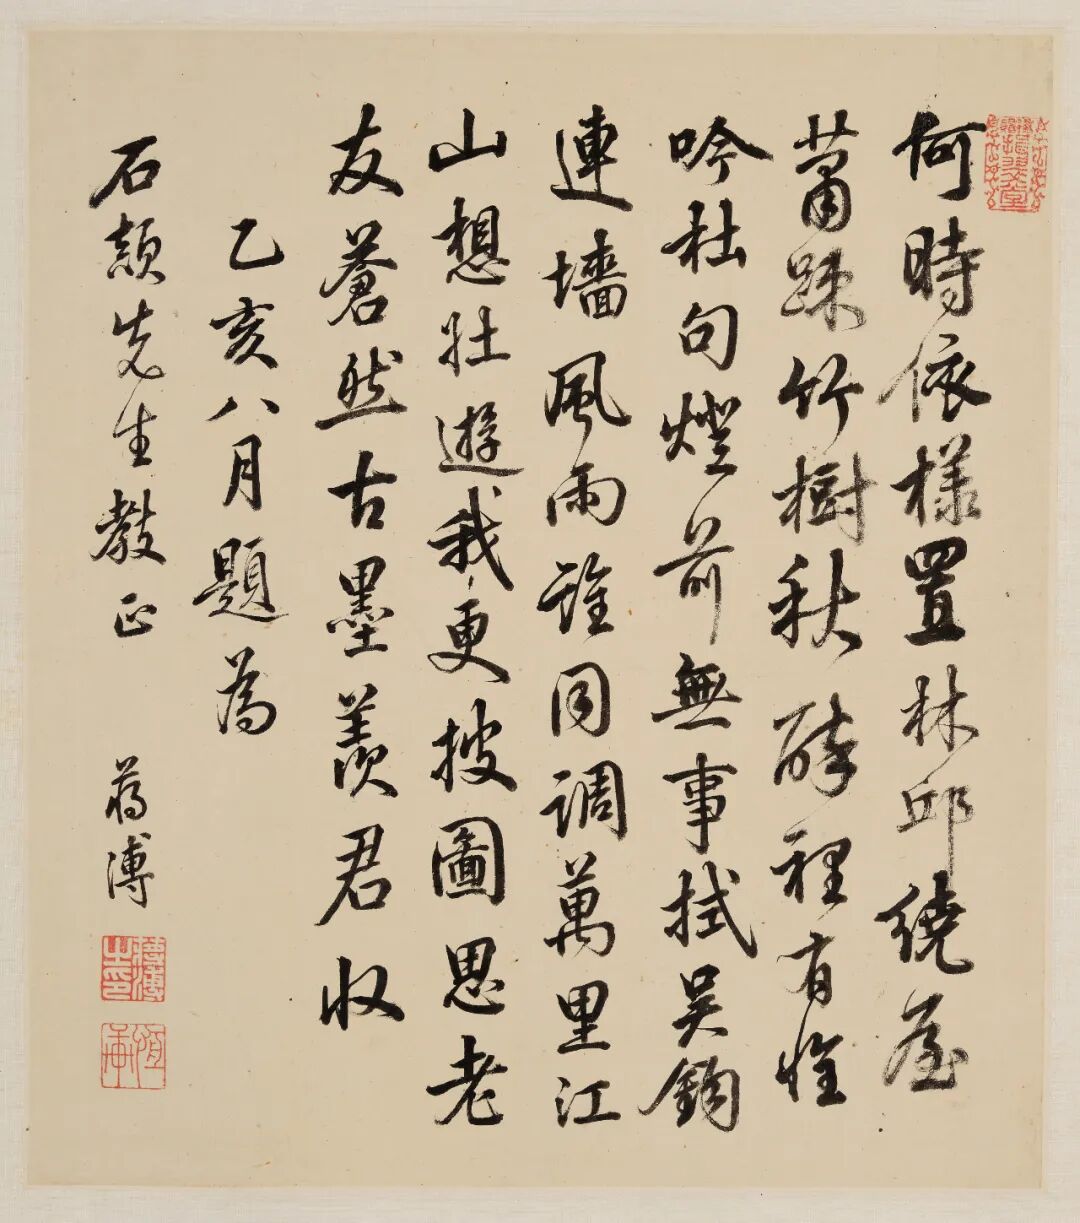 何時依樣置林邱繞屋
蕭疎竹樹秋醉裡有惟
吟杜句燈前無事拭吳鈎
連墻風雨誰同調萬里江
山想壯遊我更披圖思老
友蒼然古墨羨君收
乙亥八月題為
石頡先生教正 蔣溥
蔣溥之印